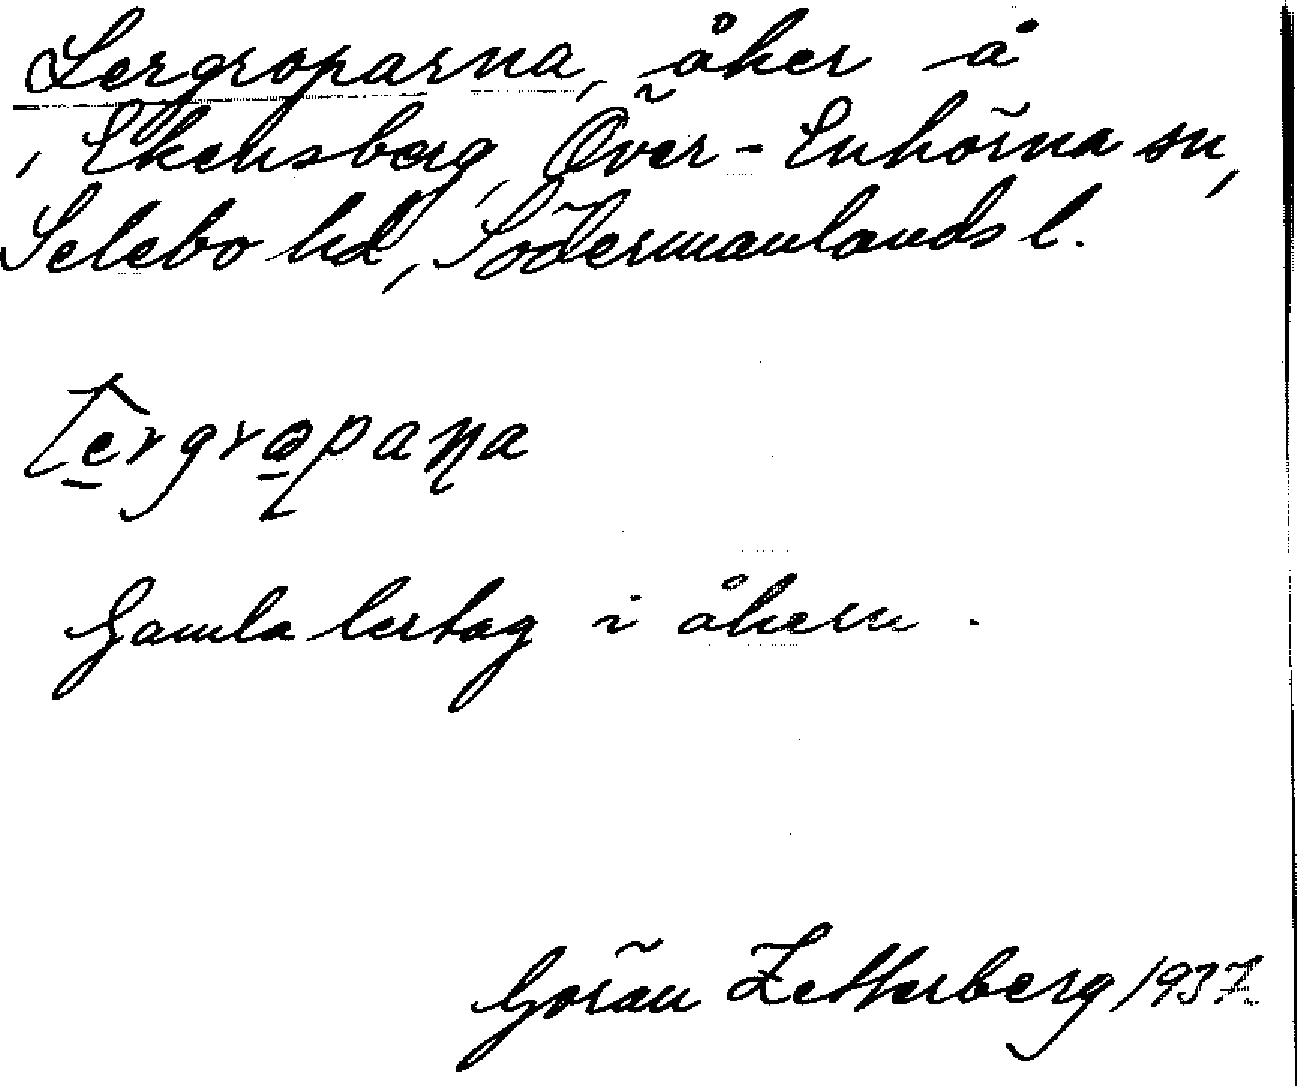 Lergroparna, åker å
, Ekensberg, Över-Enhörna sn,
Selebo hd, Södermanlands l.
Gamla lertag i åkern.
Göran Zetterberg 1937.